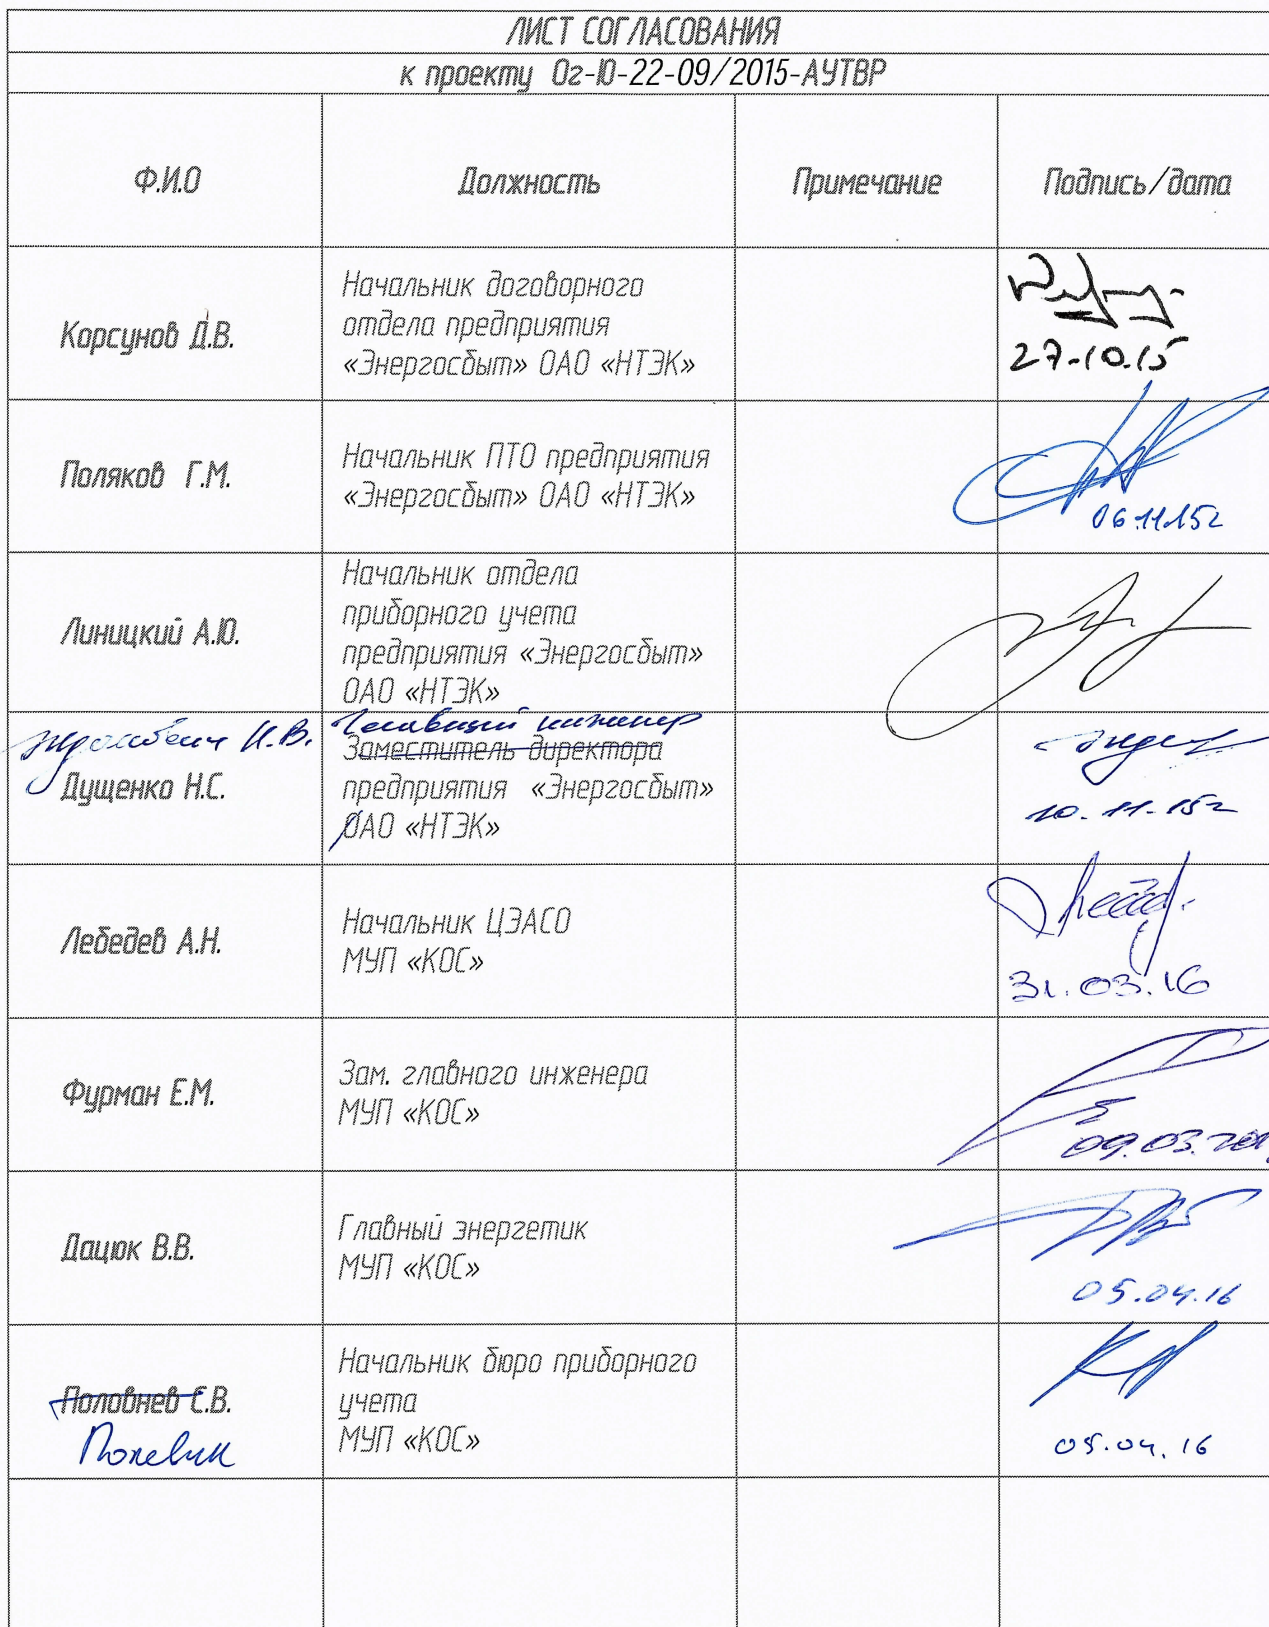 ЛИСТ СОГЛАСОВАНИЯ
к проекту Ог-Ю-22-09/2015-АУТВР
Ф.И.О
Должность
Примечание
Подпись/дата
Корсунов Д.В.
Начальник договорного
отдела предприятия
«Энергосбыт» ОАО «НТЭК»
27.10.15
Поляков Г.М.
Начальник ПТО предприятия
«Энергосбыт» ОАО «НТЭК»
06.11.15г
Линицкий А.Ю.
Начальник отдела
приборного учета
предприятия «Энергосбыт»
ОАО «НТЭК»
И.В.
Дущенко Н.С.
инженер
Заместитель директора
предприятия «Энергосбыт»
ОАО «НТЭК»
10.11.15г
Лебедев А.Н.
Начальник ЦЭАСО
МУП «КОС»
31.03.16
Фурман Е.М.
Зам. главного инженера
МУП «КОС»
09.03.
Дацюк В.В.
Главный энергетик
МУП «КОС»
05.04.16
Половнев С.В.
Начальник бюро приборного
учета
МУП «КОС»
05.04.16